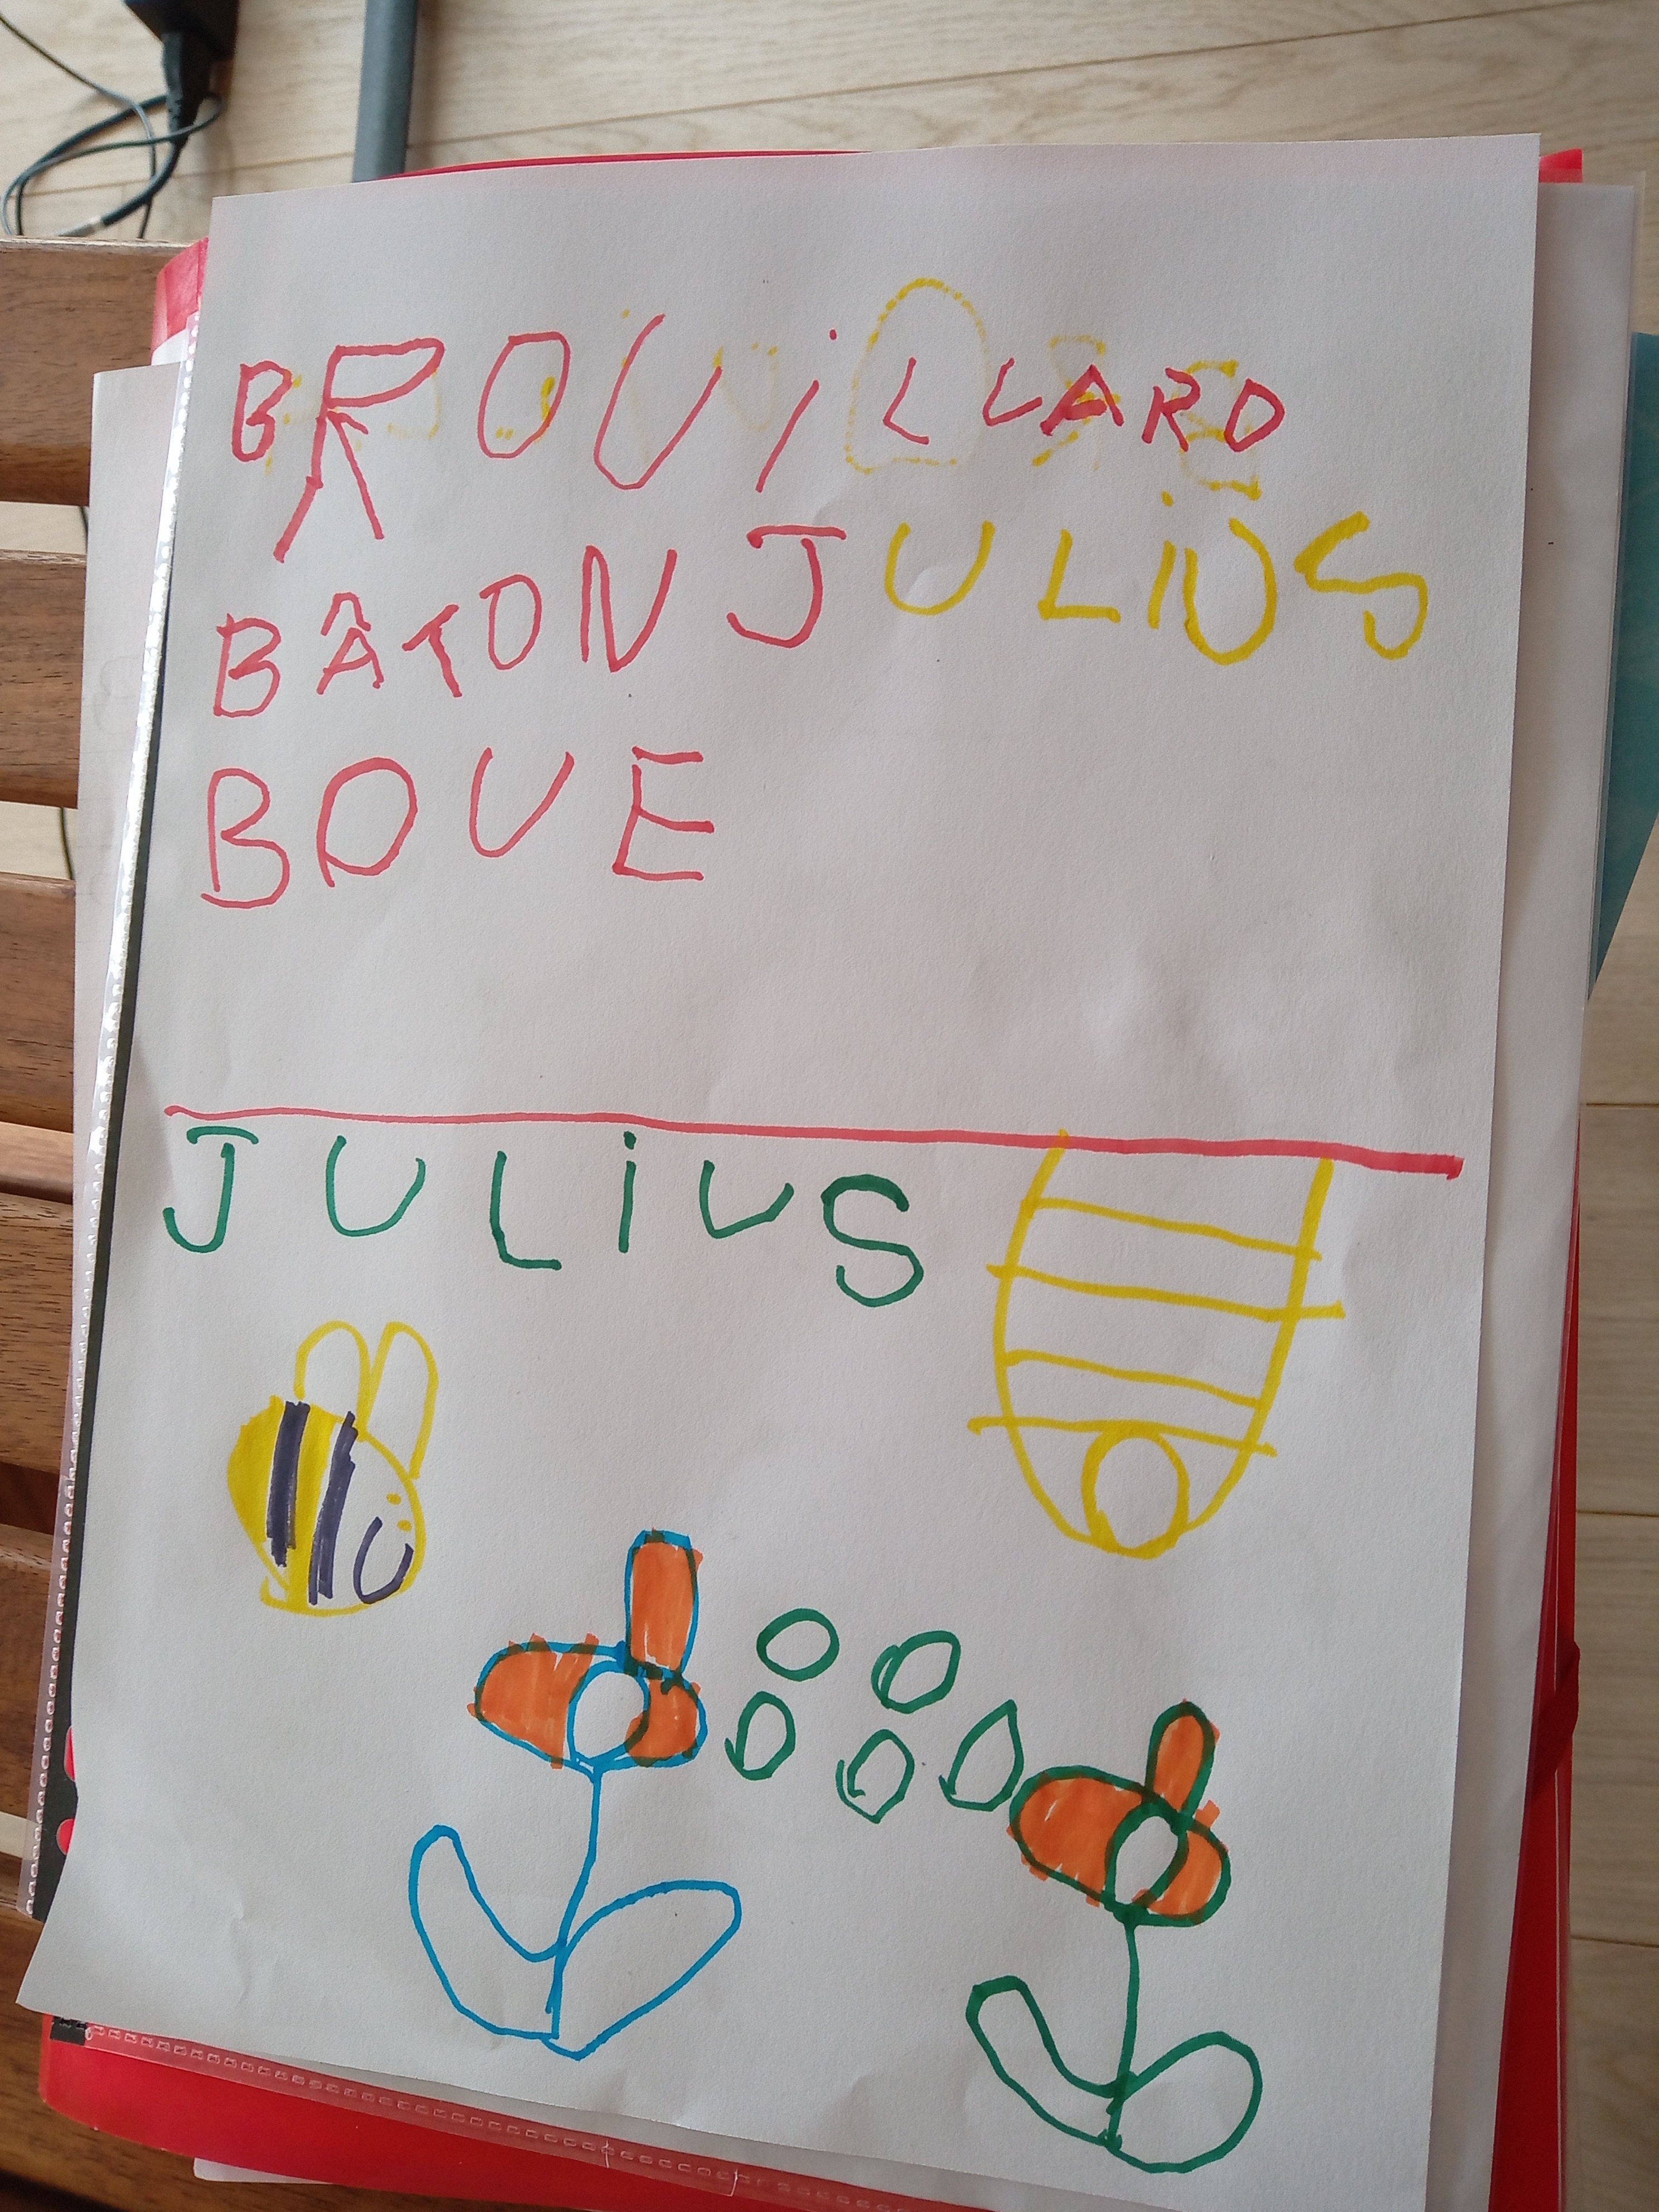 BROUiLLARD
BÂTON JULiUS
BOUE
JULiUS